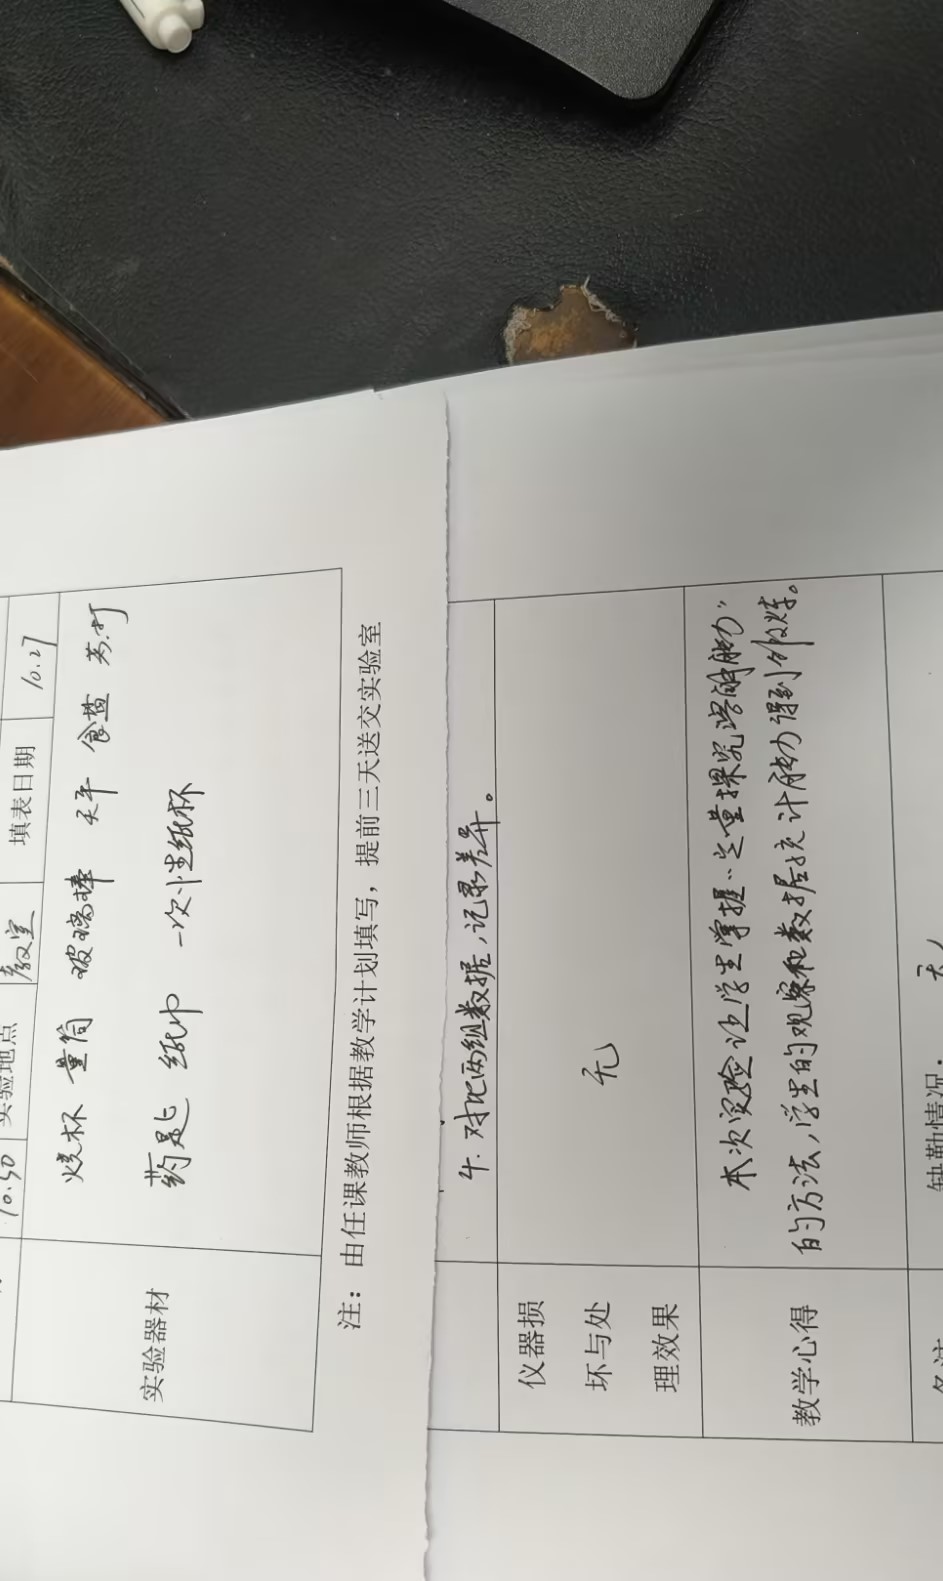 10.50 实验地点 教室 填表日期 10.27
实验器材
烧杯 量筒 玻璃棒 天平 食盐 苏打
药匙 纸巾 一次性纸杯
注：由任课教师根据教学计划填写，提前三天送交实验室
4. 对比两组数据，记录差异。
仪器损
坏与处
理效果
无
教学心得
本次实验让学生掌握“定量探究溶解能力”
的方法，学生的观察和数据统计能力得到锻炼。
缺勤情况：